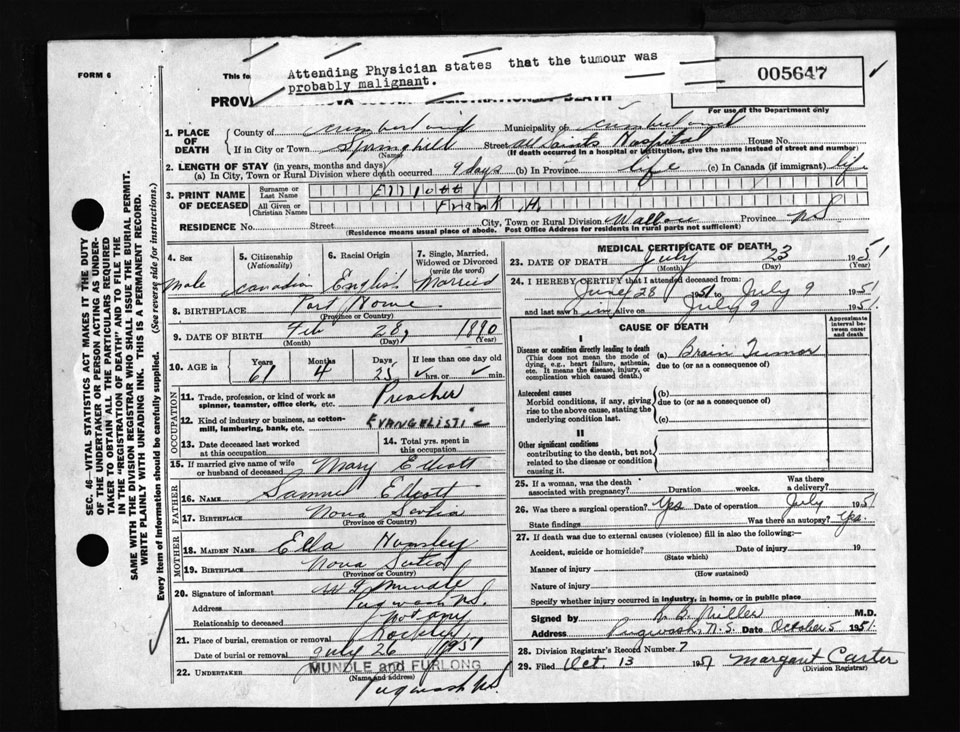 Attending Physician states that the tumour was
probably malignant.
005647
FORM 6
This fo
For use of the Department only
1. PLACE OF DEATH County of Cumberland Municipality of Cumberland
If in City or Town Springhill (Name) Street All Saints Hospital House No.
(If death occurred in a hospital or institution, give the name instead of street and number)
2. LENGTH OF STAY (in years, months and days)
(a) In City, Town or Rural Division where death occurred 9 days (b) In Province life (c) In Canada (if immigrant) life
3. PRINT NAME OF DECEASED Surname or Last Name Elliott
All Given or Christian Names Frank H.
RESIDENCE No. Street City, Town or Rural Division Wallace Province N.S
(Residence means usual place of abode. Post Office Address for residents in rural parts not sufficient)
SEC. 46—VITAL STATISTICS ACT MAKES IT THE DUTY
OF THE UNDERTAKER OR PERSON ACTING AS UNDER-
TAKER TO OBTAIN ALL THE PARTICULARS REQUIRED
IN THE "REGISTRATION OF DEATH" AND TO FILE THE
SAME WITH THE DIVISION REGISTRAR WHO SHALL ISSUE THE BURIAL PERMIT.
WRITE PLAINLY WITH UNFADING INK. THIS IS A PERMANENT RECORD.
Every item of Information should be carefully supplied. (See reverse side for instructions.)
4. Sex 5. Citizenship (Nationality) 6. Racial Origin 7. Single, Married, Widowed or Divorced (write the word)
Male Canadian English Married
8. BIRTHPLACE Port Howe
(Province or Country)
9. DATE OF BIRTH Feb 28, 1890
(Month) (Day) (Year)
10. AGE in Years Months Days If less than one day old
61 4 25 hrs. or min.
OCCUPATION
11. Trade, profession, or kind of work as spinner, teamster, office clerk, etc. Preacher
12. Kind of industry or business, as cotton-mill, lumbering, bank, etc. EVANGELISTIC
13. Date deceased last worked at this occupation 14. Total yrs. spent in this occupation
15. If married give name of wife or husband of deceased Mary Elliott
FATHER
16. NAME Samuel Elliott
17. BIRTHPLACE Nova Scotia
(Province or Country)
MOTHER
18. MAIDEN NAME Ella
19. BIRTHPLACE Nova Scotia
(Province or Country)
20. Signature of informant Mundle
Address Pugwash N.S.
Relationship to deceased Not any
21. Place of burial, cremation or removal Rockley
Date of burial or removal July 26 1951
22. UNDERTAKER MUNDLE and FURLONG
(Name and Address)
Pugwash N.S.
MEDICAL CERTIFICATE OF DEATH
23. DATE OF DEATH July 23 1951
(Month) (Day) (Year)
24. I HEREBY CERTIFY that I attended deceased from:
June 28 1951 to July 9 1951
and last saw him alive on July 9 1951.
CAUSE OF DEATH
Approximate interval between onset and death
I
Disease or condition directly leading to death (a) Brain Tumor
(This does not mean the mode of dying, e.g., heart failure, asthenia, etc. It means the disease, injury, or complication which caused death.)
due to (or as a consequence of)
Antecedent causes
Morbid conditions, if any, giving rise to the above cause, stating the underlying condition last.
(b)
due to (or as a consequence of)
(c)
II
Other significant conditions
contributing to the death, but not related to the disease or condition causing it.
25. If a woman, was the death associated with pregnancy? Duration weeks. Was there a delivery?
26. Was there a surgical operation? Yes Date of operation July 1951
State findings Was there an autopsy? Yes.
27. If death was due to external causes (violence) fill in also the following:—
Accident, suicide or homicide? Date of injury 19
(State which)
Manner of injury
(How sustained)
Nature of injury
Specify whether injury occurred in industry, in home, or in public place
Signed by B. Miller M.D.
Address Pugwash, N.S. Date October 5 1951.
28. Division Registrar's Record Number 7
29. Filed Oct. 13 1951 Margaret Carter
(Division Registrar)